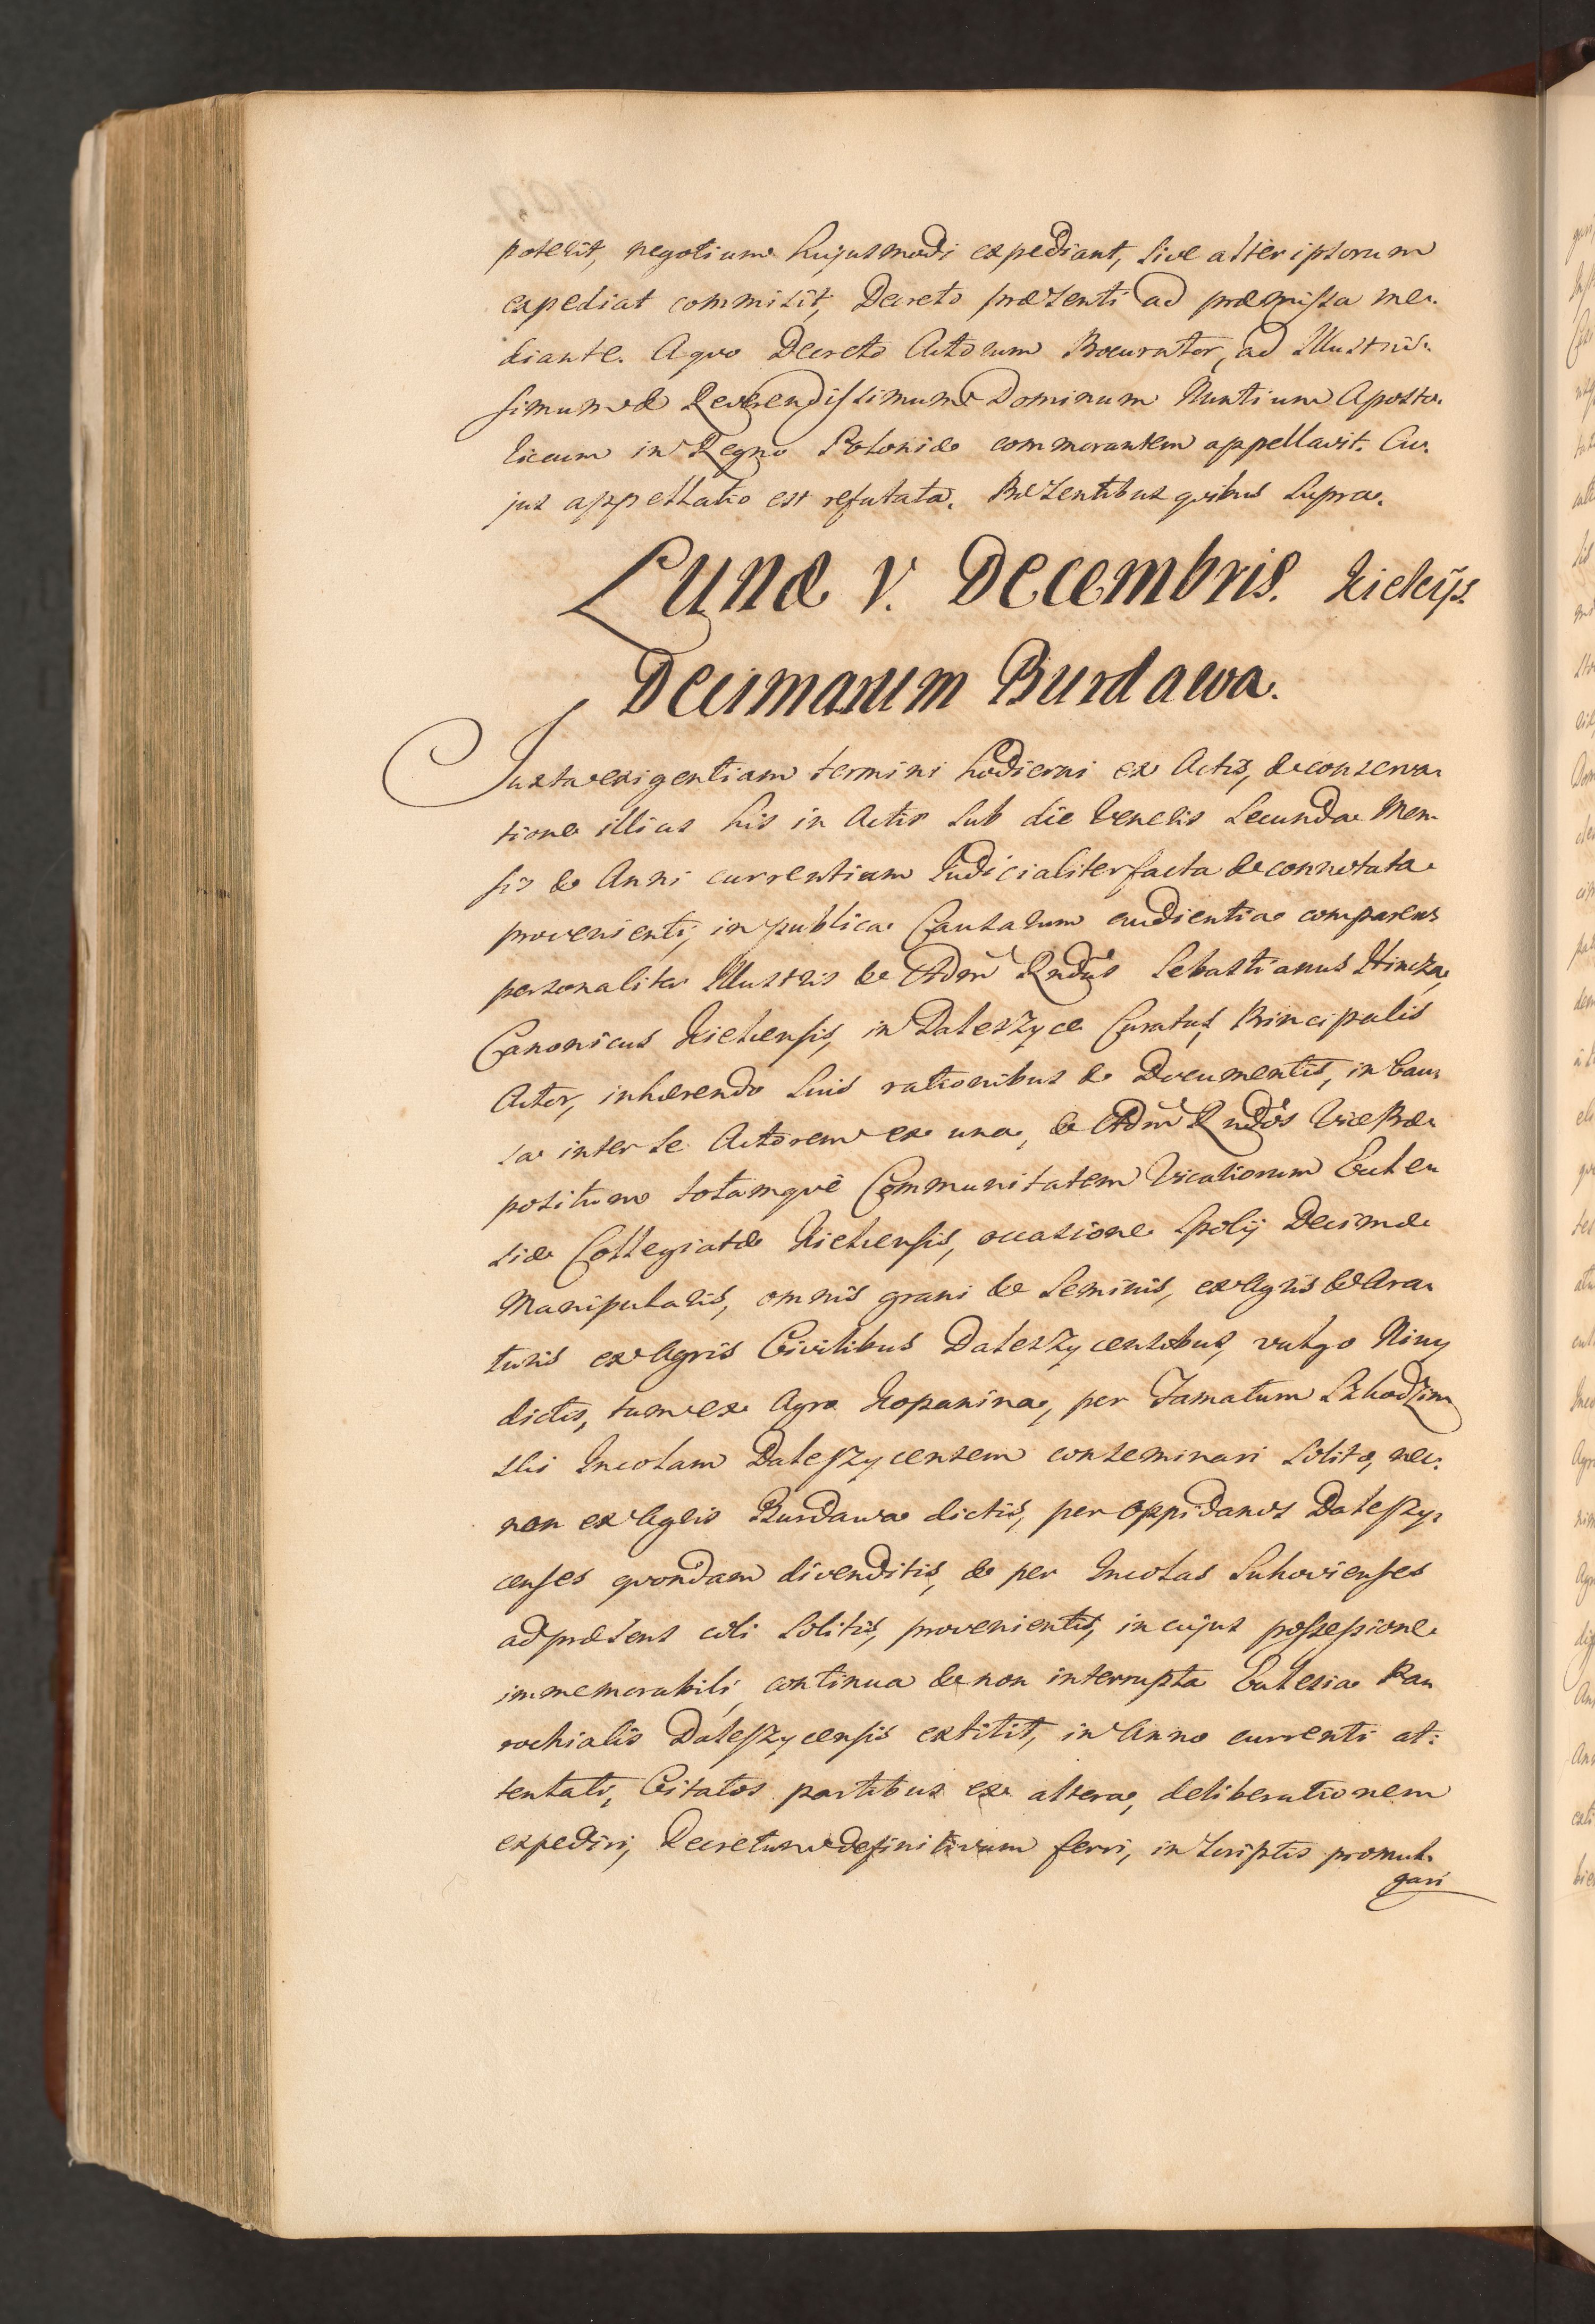 poterit, negotium hujusmodi expediant, sive alter ipsorum
expediat commisit, Decreto præsenti ad præmissa me-
diante. A quo Decreto Actorum Procurator, ad Illustris-
simum & Reverendissimum Dominum Nuntium Aposto-
licum in Regno Poloniæ commorantem appellavit. Cu-
jus appellatio est refutata. Præsentibus quibus supra.
Lunæ v. Decembris. Kielcijs.
Decimarum Burdawa.
Juxta exigentiam termini hodierni ex Actis, & conserva-
tione illius his in Actis sub die Veneris secunda Men-
sis & Anni currentium Judicialiter facta & connotata
provenienti, in publica Causarum audientia comparens
personaliter Illustris & Adm̃ Rñdus Sebastianus Hincza,
Canonicus Kielcensis, in Daleszyce Curatus, Principalis
Actor, inhærendo suis rationibus & Documentis, in Cau-
sa inter se Actorem ex una, & Adm̃ Rñdos Vice Præ-
positum totamquè Communitatem Vicariorum Eccle-
siæ Collegiatæ Kielcensis, occasione spolij Decimæ
Manipularis, omnis grani & seminis, ex Agris & Ara-
turis ex Agris Civilibus Daleszycensibus, vulgo Niwy
dictis, tum ex Agro Kopanina, per Famatum
ski Incolam Daleszycensem conseminari solito, nec-
non ex Agris Burdawa dictis, per Oppidanos Daleszy-
censes quondam divenditis, & per Incolas Sukovienses
ad præsens coli solitis, provenientis, in cujus possessione
immemorabili, continua & non interrupta Ecclesia Pa-
rochialis Daleszycensis extitit, in Anno currenti at-
tentati, Citatos partibus ex altera, deliberationem
expediri, Decretum definitivum ferri, in scriptis promul-
gari